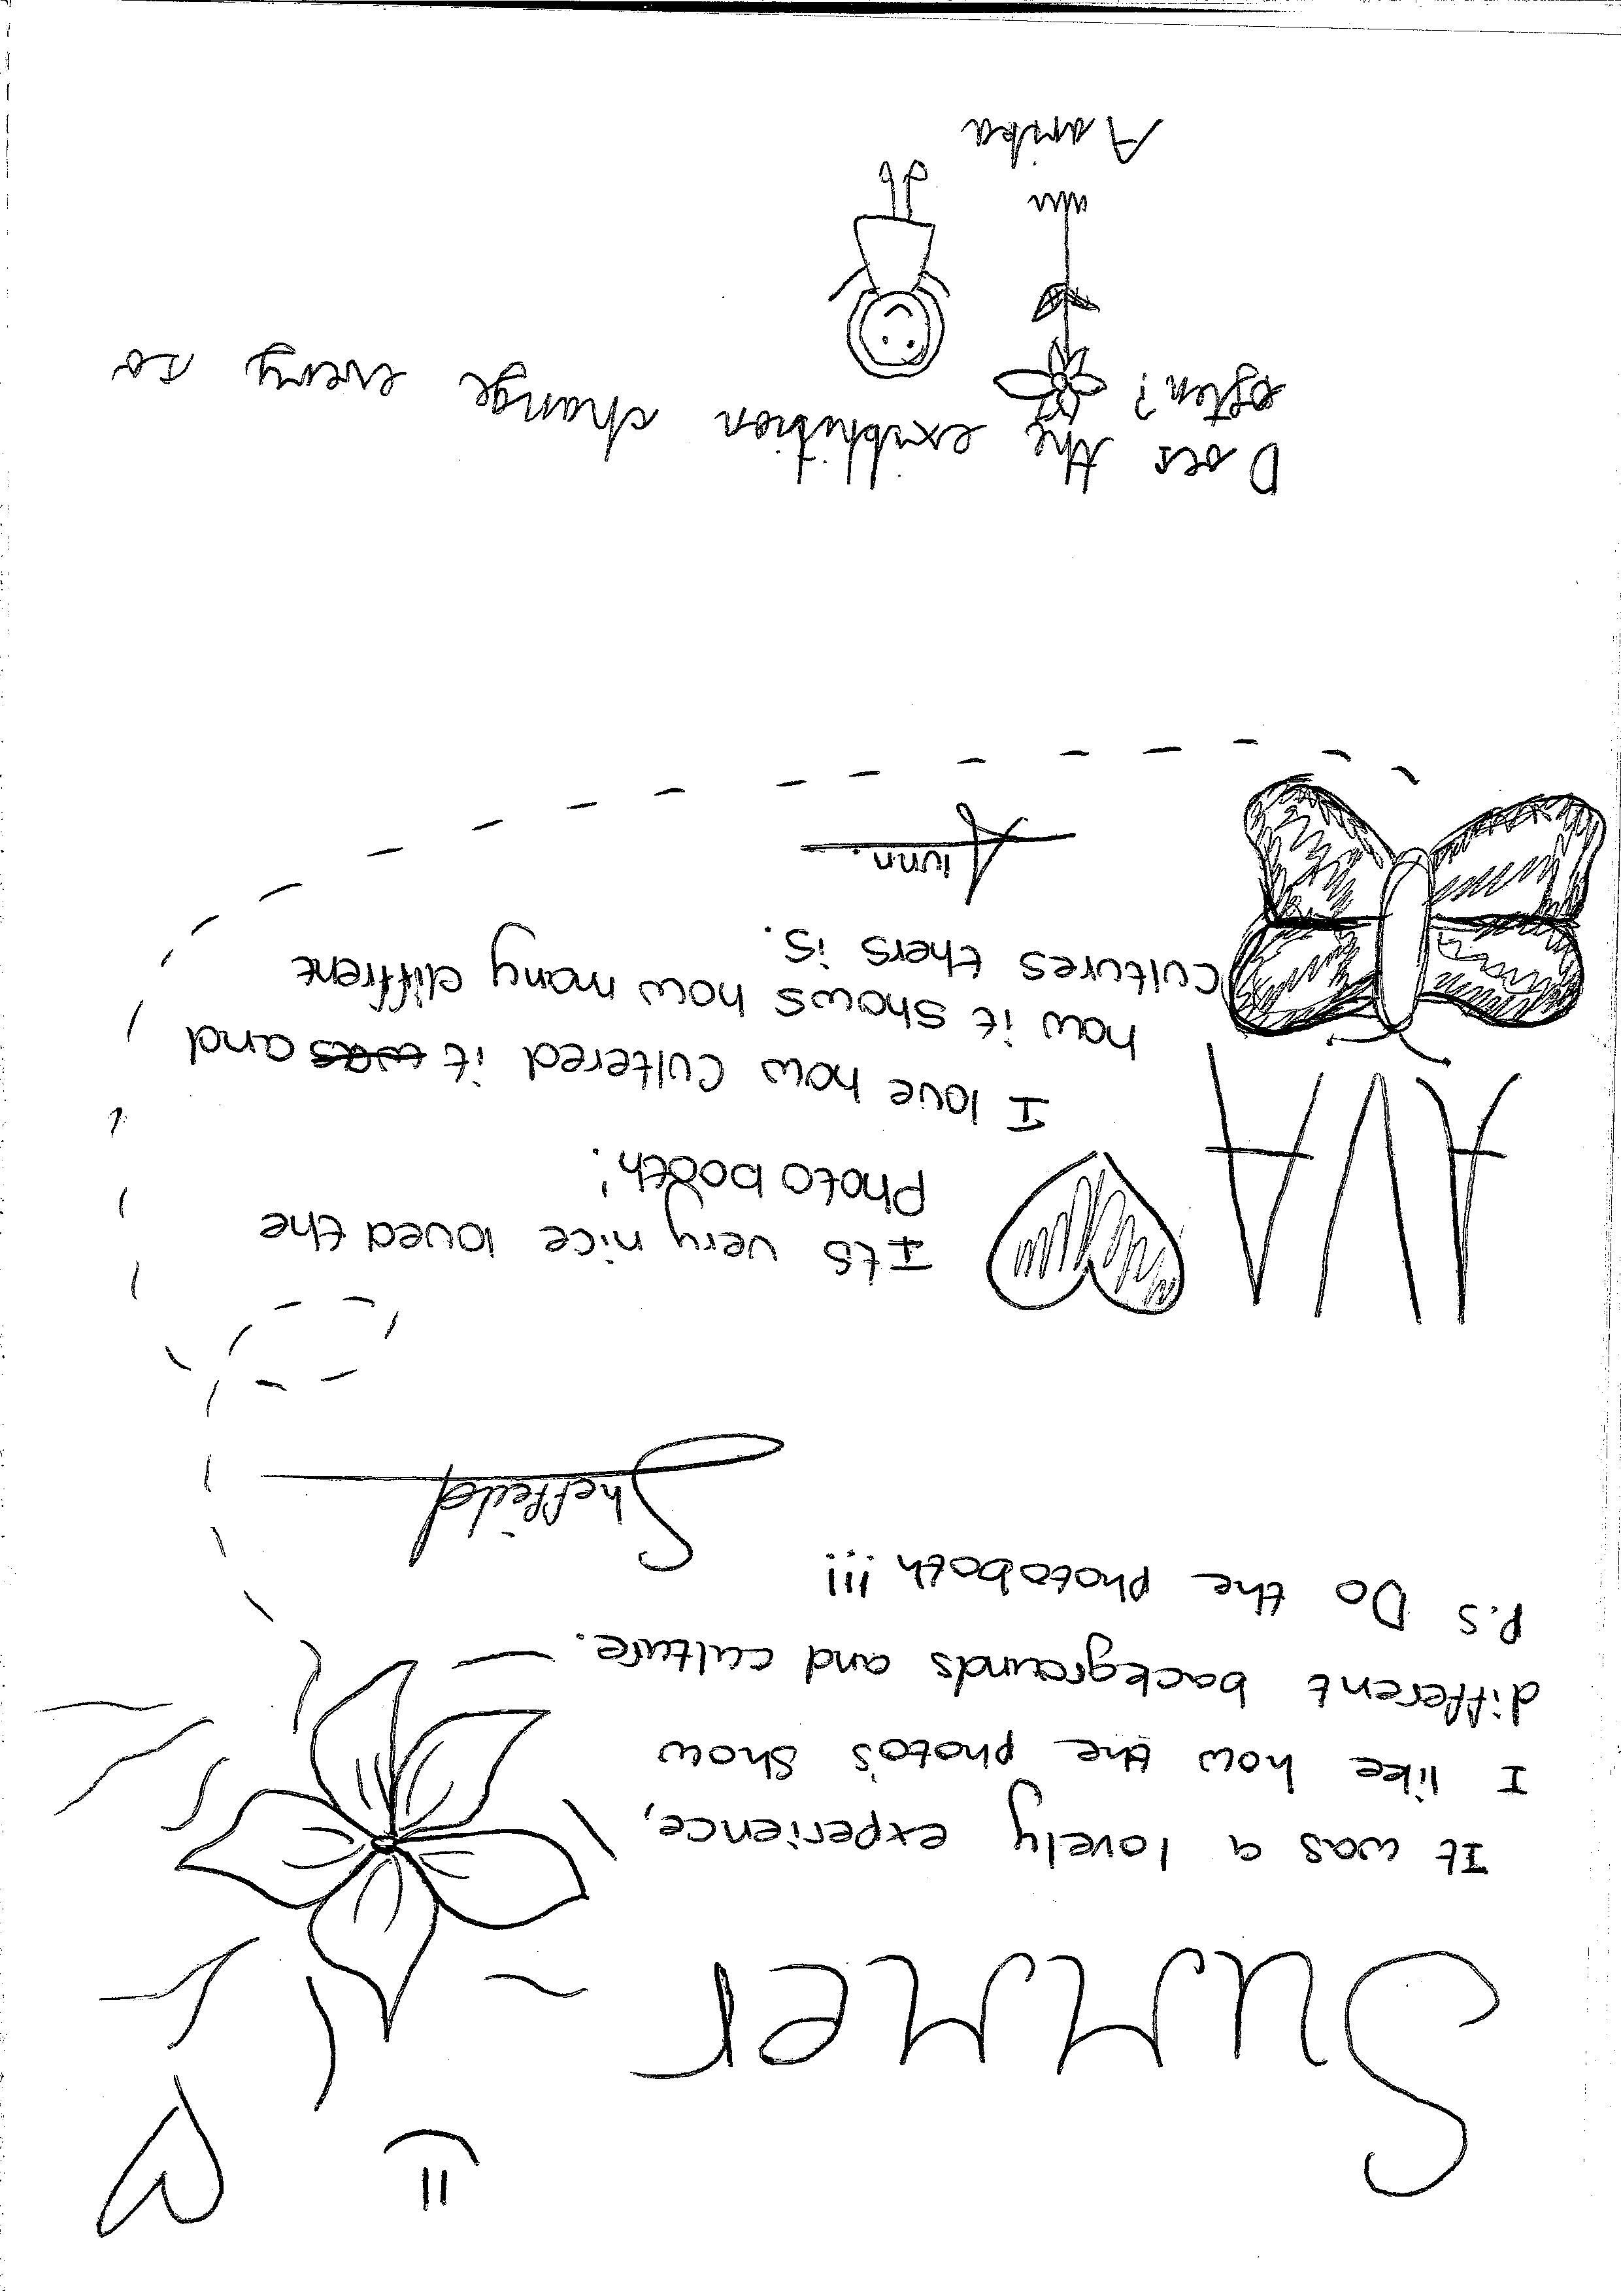 Summer
It was a lovely experience,
I like how the photo's show
different backgrounds and culture.
P.S Do the photoboth !!!
Sheffeild
AVA
Its very nice loved the
Photo booth!
I love how cultered it was and
how it shows how many diffrent
cultures thers is.
Does the exibhition change every so
often?
Aarika